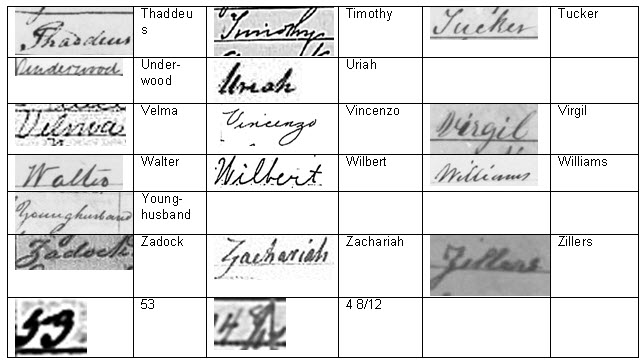 Thaddeus Thaddeu
s Timothy Timothy Tucker Tucker
Underwood Under-
wood Uriah Uriah
Velma Velma Vincenzo Vincenzo Virgil Virgil
Walter Walter Wilbert Wilbert Williams Williams
Younghusband Young-
husband
Zadock Zadock Zachariah Zachariah Zillers Zillers
53 53 4 8/12 4 8/12